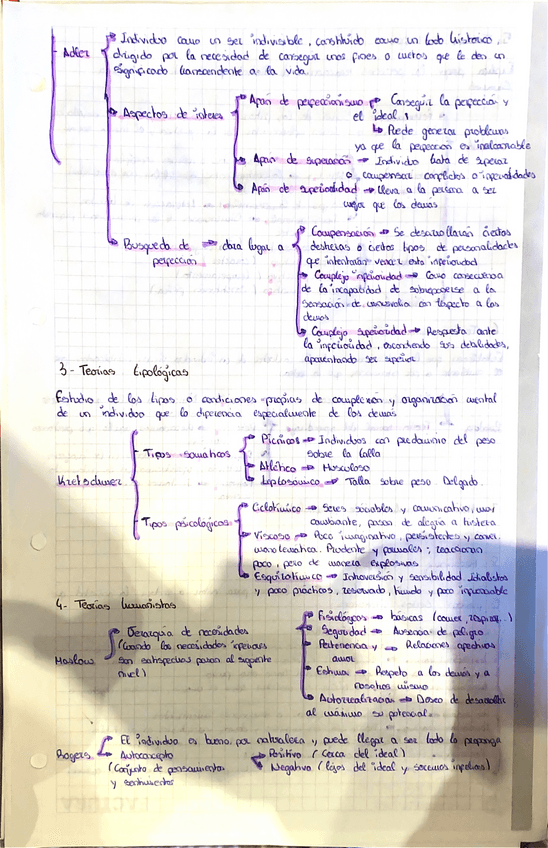 Adler
Individuo como un ser indivisible, constituido como un todo historico,
dirigido por la necesidad de conseguir unos fines o metas que le den un
significado transcendente a la vida.
Aspectos de interes
Afan de perfeccionismo → Conseguir la perfección y
el ideal
↳ Puede generar problemas
ya que la perfección es inalcanzable
Afan de superación → Individuo trata de superar
o compensar conflictos o inferioridades
Afan de superioridad → lleva a la persona a ser
mejor que los demás
Busqueda de → dara lugar a
perfección
Compensación → Se desarrollaran ciertas
destrezas o ciertos tipos de personalidades
que intentaran vencer esta inferioridad
Complejo inferioridad → Como consecuencia
de la incapabidad de sobreponerse a la
sensación de con respecto a los
demas
Complejo superioridad → Respuesta ante
la inferioridad, escondiendo sus debilidades,
aparentando ser superior
3- Teorias tipológicas
Estudio de los tipos o condiciones propias de complexion y organización mental
de un individuo que lo diferencia especialmente de los demás
Kretschmer
Tipos somaticos
Pícnicos → Individuos con predominio del peso
sobre la talla
Atlético → Musculoso
Leptosómico → Talla sobre peso. Delgado.
Tipos psicologicos
Ciclotimico → Seres sociables y comunicativo, muy
cambiante, pasan de alegria a tristeza
Viscoso → Poco imaginativo, persistentes y
monotematica. Prudente y formales; reaccionan
poco, pero de manera explosivas
Esquizotimico → Introversión y sensibilidad. Idealistas
y poco prácticos, reservado, timido y poco
4- Teorias humanistas
Maslow
Jerarquia de necesidades
(Cuando las necesidades inferiores
son satisfechas pasan al siguiente
nivel)
Fisiológicas → básicas (comer, respirar..)
Seguridad → Ausencia de peligro
Pertenencia y → Relaciones afectivas
amor
Estima → Respeto a los demás y a
nosotros mismo
Autorrealización → Deseo de desarrollar
al máximo su potencial.
Rogers
El individuo es bueno por naturaleza y puede llegar a ser todo lo proponga
Autoconcepto
(Conjunto de pensamientos
y sentimientos
Positivo (Cerca del ideal)
Negativo (lejos del ideal y seremos infelices)